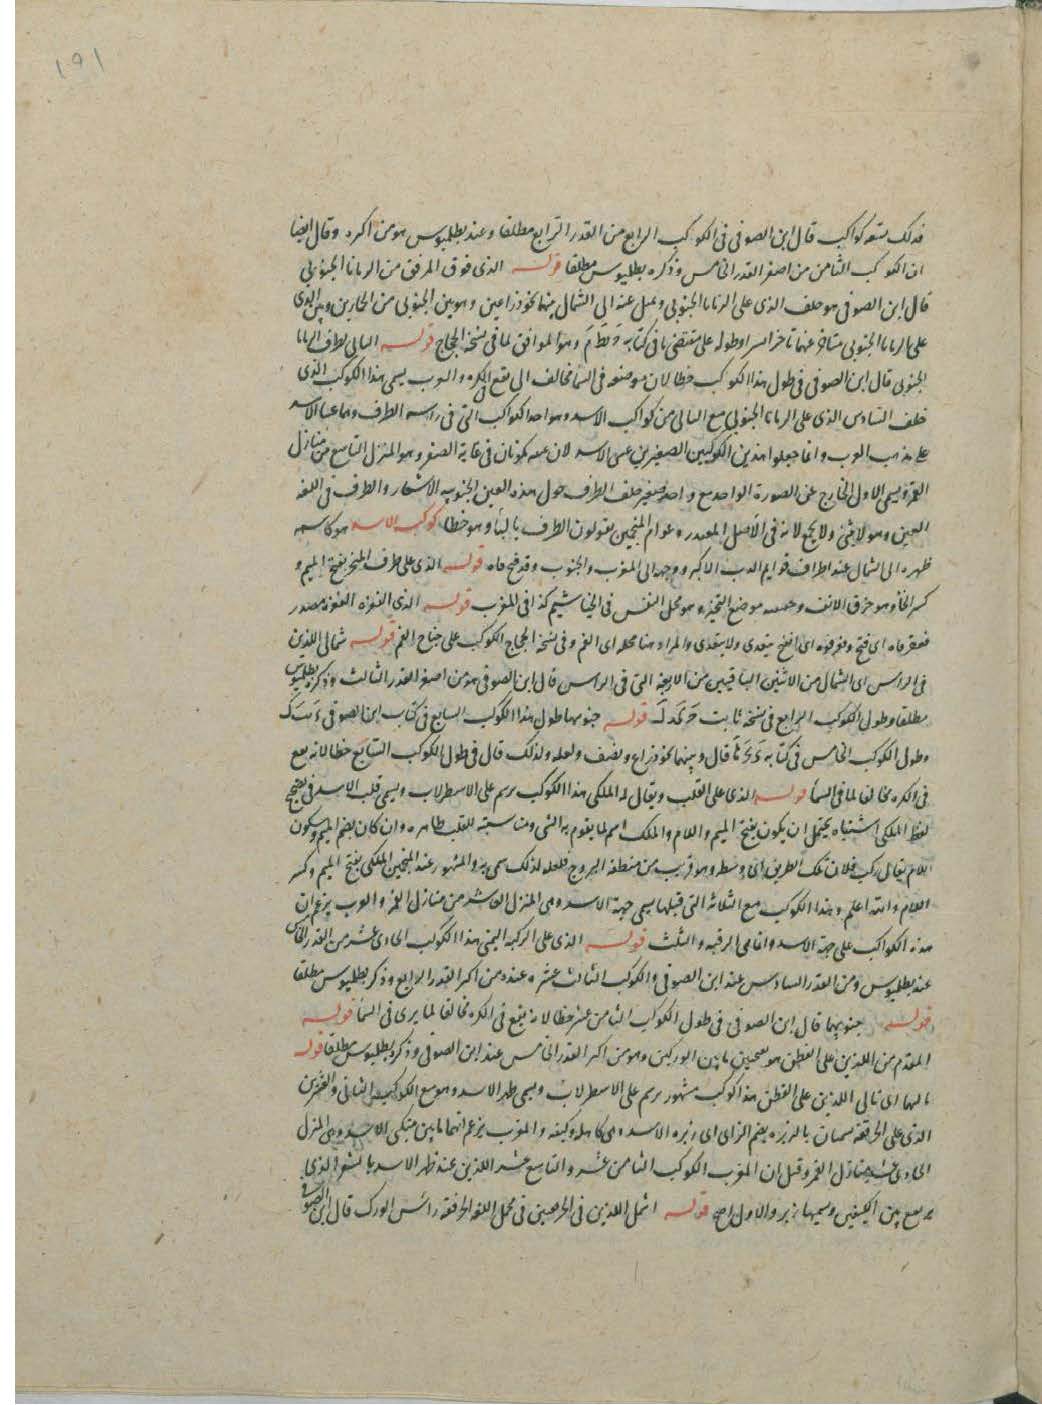 ١٩١
فذلك ستة كواكب قال ابن الصوفي في الكوكب الرابع من القدر الرابع مطلقا وعند بطلميوس هو من اكبره وقال ايضا
ان الكوكب الثامن من اصغر القدر الخامس وذكره بطلميوس مطلقا قوله الذي فوق المرفق من الزبانا الجنوبي
قال ابن الصوفي هو خلف الذي على الزبانا الجنوبي ويميل عنه الى الشمال بينهما نحو ذراعين وهو بين الجنوبي من الحمارين وبين الذي
على الزبانا الجنوبي متاخر عنهما تاخرا يسيرا وطوله على مقتضى ما في كتابه وهو الموافق لما في نسخة الحجاج قوله التالي لطرف الزبانا
الجنوبي قال ابن الصوفي في طول هذا الكوكب خطا لان موضعه في السما مخالف الى يقع في الكره والعرب يسمى هذا الكوكب الذي
خلف السادس الذي على الزبانا الجنوبي مع التالي من كواكب الاسد وهو احد الكواكب التي في راسه الطرف وهما عينا الاسد
على مذهب العرب وانما جعلوا هذين الكوكبين الصغيرين عيني الاسد لان عينيه يكونان في غاية الصغر وهو المنزل التاسع من منازل
القمر ويسمى الاول الخارج عن الصورة الواحد مع واحد صغير خلف الطرف حول هذه العين الجنوبية الاشفار والطرف في اللغة
العين وهو لا يثنى ولا يجمع لانه في الاصل المصدر وعوام المنجمين يقولون الطرف باليا وهو خطا كوكبه الاسد هو كاسمه
ظهره الى الشمال عند اطراف قوايم الدب الاكبر ووجهه الى المغرب والجنوب وقد فتح فاه قوله الذي على طرف المنخر بفتح الميم و
كسر الخا وهو خرق الانف وحقيقته موضع النخير وهو محل النفس في الخياشيم كذا في المغرب قوله الذي الفغره الفغر مصدر
فغر فاه اي فتح وفغر فوه اي انفتح يتعدى ولا يتعدى والمراد هنا محله اي الفم وفي نسخة الحجاج الكوكب على جناح الفم قوله شمالي اللذين
في الراس اي الشمال من الاثنين الباقيين من الاربعة التي في الراس قال ابن الصوفي هو من اصغر القدر الثالث وذكره بطلميوس
مطلقا وطول الكوكب الرابع في نسخة ثابت قوله جنوبيهما طول هذا الكوكب السابع في كتاب ابن الصوفي
وطول الكوكب الخامس في كتابه قال وبينهما نحو ذراع ونصف ولعله ولذلك قال في طول الكوكب السابع خطا لانه يقع
في الكره مخالفا لما في السما قوله الذي على القلب ويقال له الملكي هذا الكوكب يرسم على الاسطرلاب ويسمى قلب الاسد في تصحيح
لفظ الملكي اشتباه يحتمل ان يكون بفتح الميم واللام والملك اسم لما يقوم به الشي ومناسبته للقلب ظاهره وان كان بضم الميم وسكون
اللام يقال ركب فلان ملك الطريق اي وسطه وهو قريب من منطقة البروج فلعله لذلك سمي به والمشهور عند المنجمين الملكي بفتح الميم وكسر
اللام والله اعلم وهذا الكوكب مع الثلاثة التي قبلها يسمى جبهة الاسد وهي المنزل العاشر من منازل القمر والعرب يزعم ان
هذه الكواكب على جبهة الاسد وانما هي الرقبه والثلث قوله الذي على الركبه اليمنى هذا الكوكب الحادي عشر من القدر الخامس
عند بطلميوس ومن القدر السادس عند ابن الصوفي والكوكب الثالث عشر عنده من اكبر القدر الرابع وذكر بطلميوس مطلقا
قوله جنوبيهما قال ابن الصوفي في طول الكوكب الثامن عشر خطا لانه يقع في الكره مخالفا لما يرى في السما قوله
المتقدم من اللذين على القطن هو بفتحتين ما بين الوركين وهو من اكبر القدر الخامس عند ابن الصوفي وذكره بطلميوس مطلقا قوله
تاليهما اي تالي اللذين على القطن هذا كوكب مشهور يرسم على الاسطرلاب ويسمى ظهر الاسد وهو مع الكوكب الثاني والعشرين
الذي على الحرقفه يسميان بالزبره بضم الزاي اي زبره الاسد وهي كاهله وكتفه والعرب يزعم انهما ما بين منكبي الاسد وهي المنزل
الحادي عشر من منازل القمر وقيل ان العرب الكوكب الثامن عشر والتاسع عشر اللذين عند ظهر الاسد بالشعر الذي
يرتفع بين الكتفين وسميهما زبره والاول اصح قوله اشمل اللذين في الحرقفتين في مجمل اللغة الحرقفة راس الورك قال ابن الصوفي